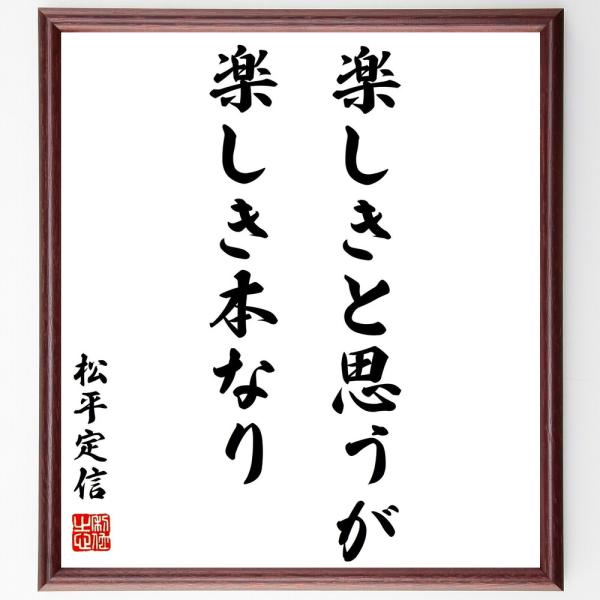 楽しきと思うが
楽しき本なり
松平定信